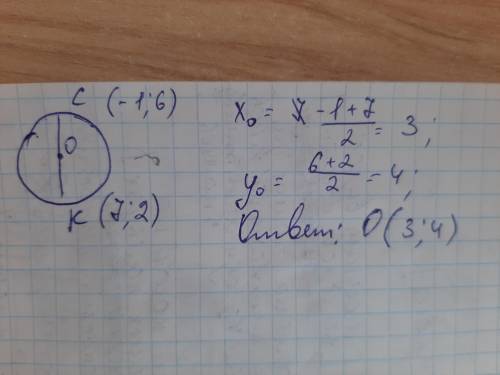 C (-1; 6)
O
K (7; 2)
x₀ = (-1+7)/2 = 3;
y₀ = (6+2)/2 = 4;
Ответ: O(3; 4)